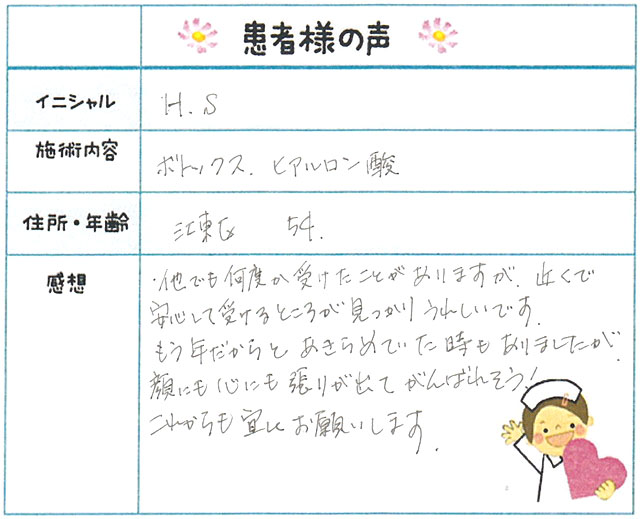 患者様の声
イニシャル H.S
施術内容 ボトックス. ヒアルロン酸
住所・年齢 江東区 54.
感想
・他でも何度か受けたことがありますが、近くで
安心して受けるところが見つかりうれしいです.
もう年だからと あきらめていた時もありましたが.
顔にも心にも張りが出て がんばれそう!
これからも宜しくお願いします.